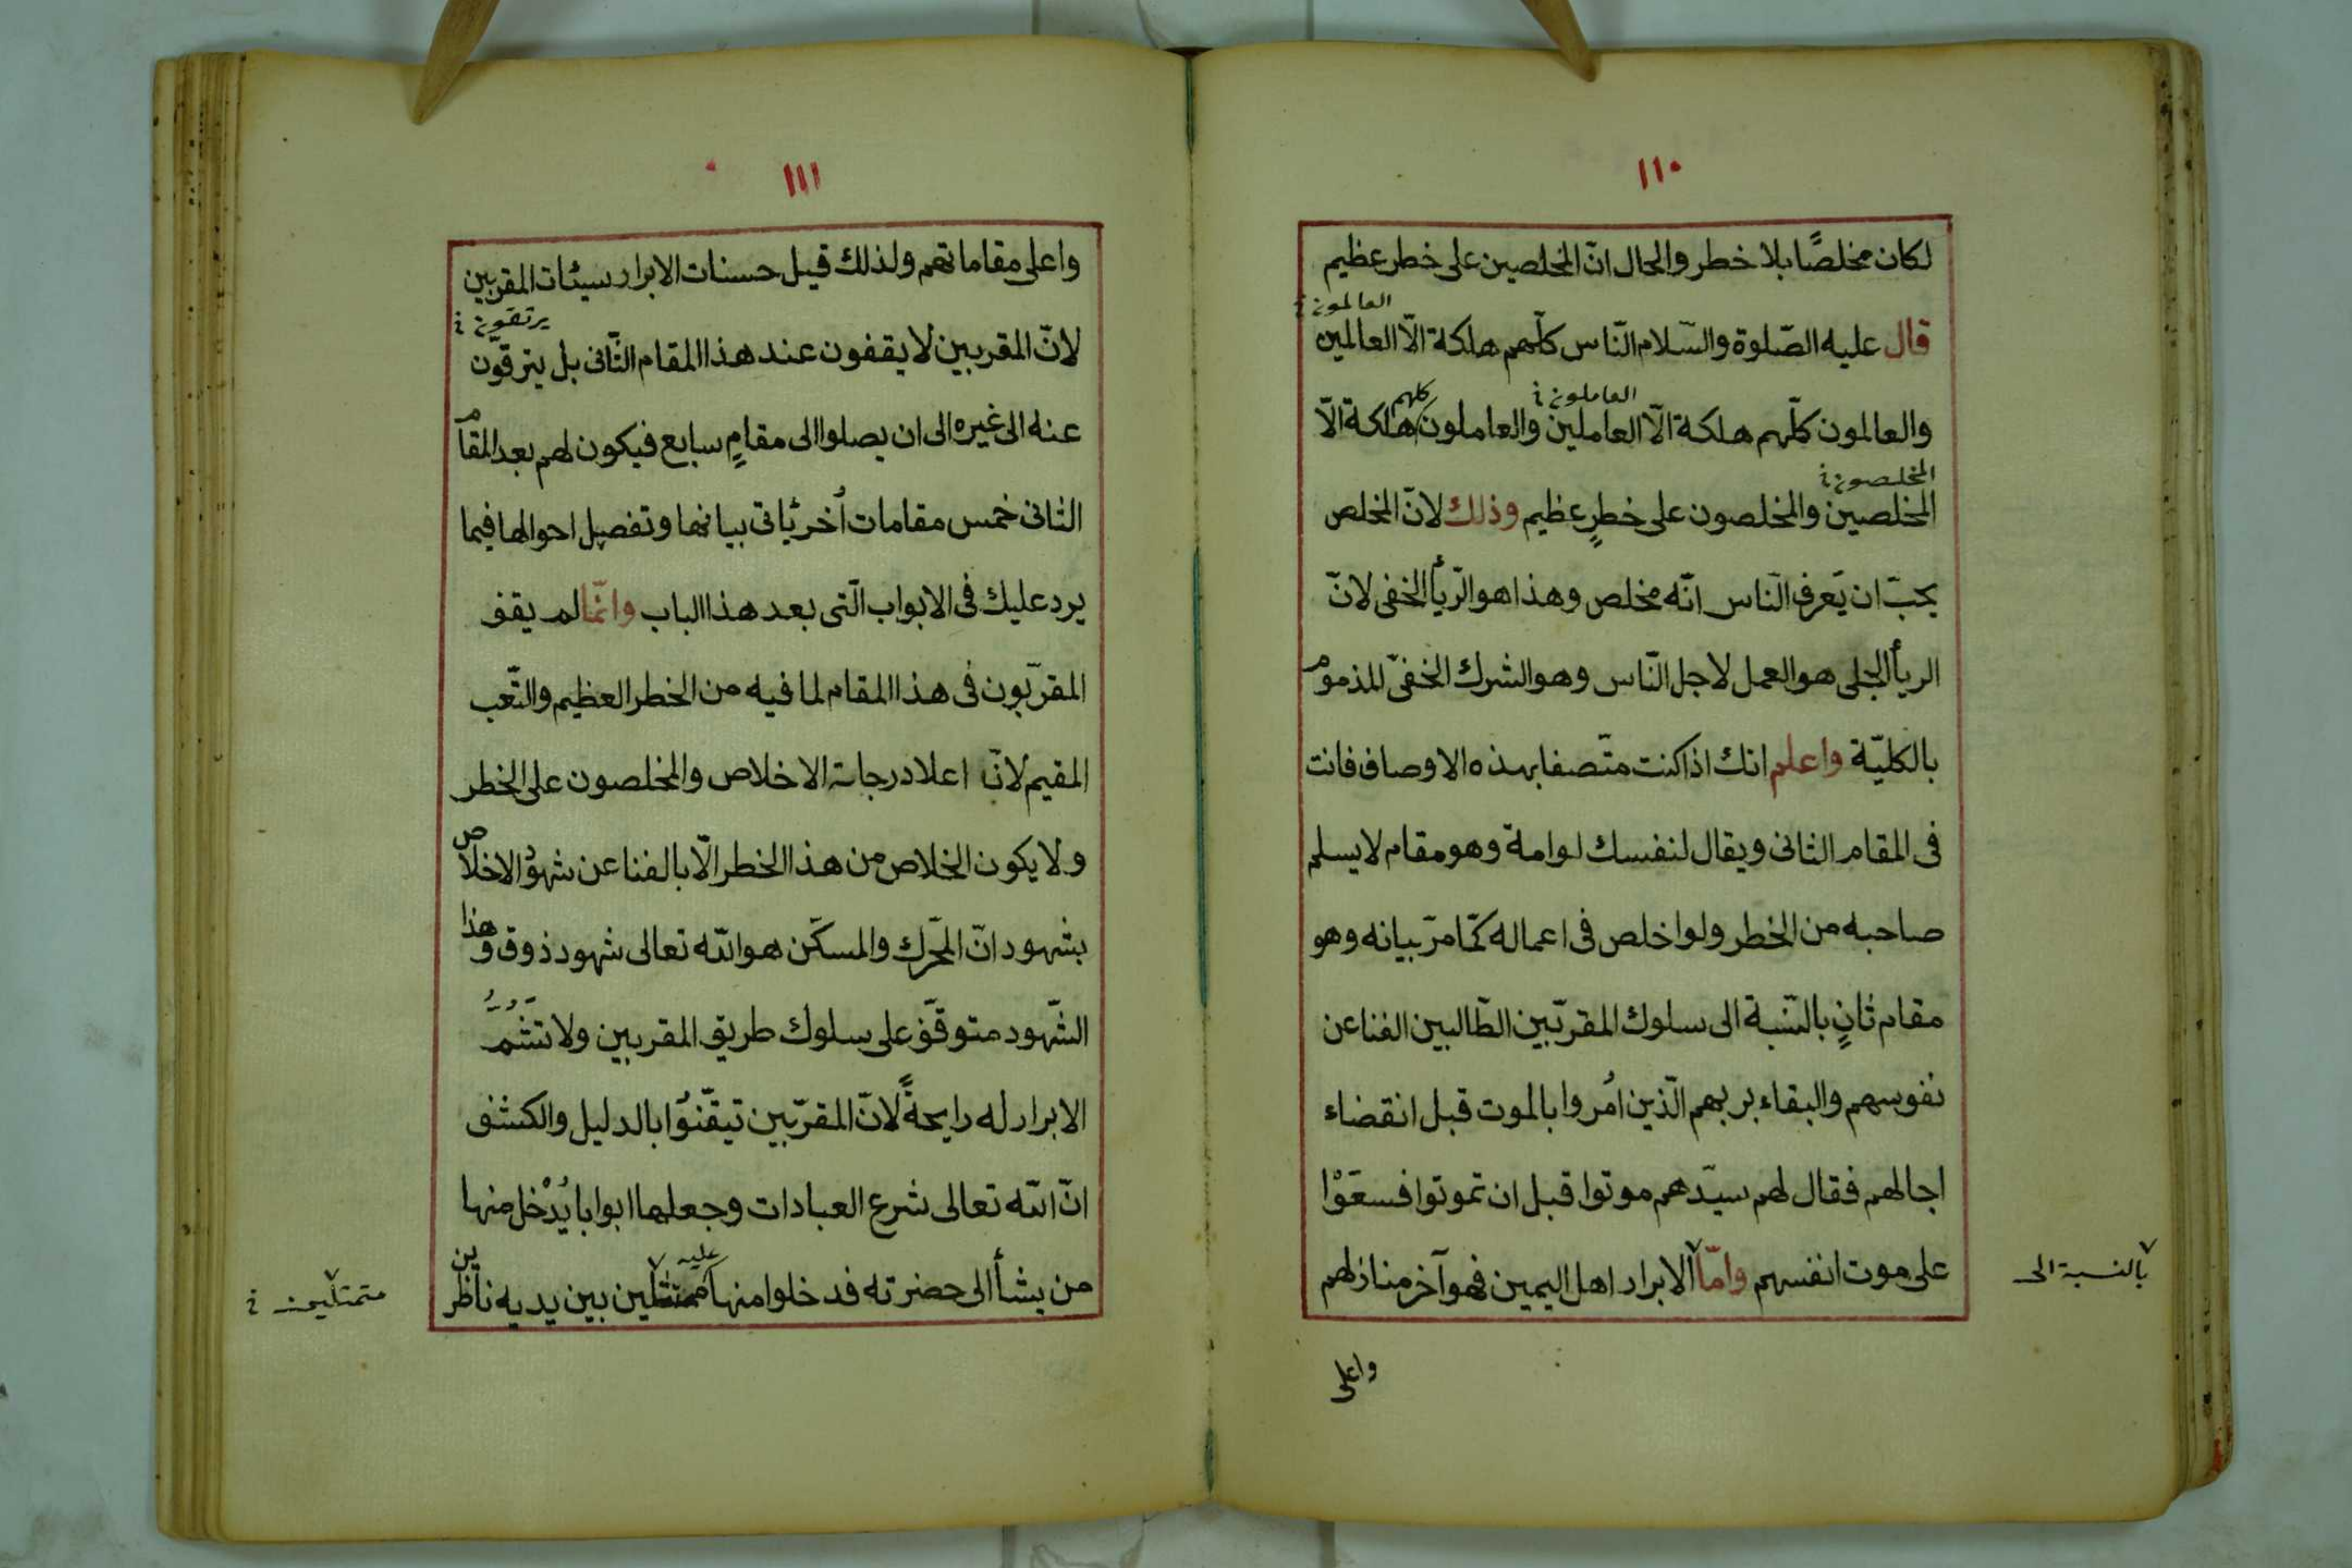 ١١٠
لكان مخلصًا بلا خطر والحال انّ المخلصين على خطر عظيم
العالمون خ
قال عليه الصّلوة والسّلام النّاس كلّهم هلكة الّا العالمين
العاملون خ كلهم
والعالمون كلّهم هلكة الّا العاملين والعاملون هلكة الّا
المخلصون خ
المخلصين والمخلصون على خطرٍ عظيم وذلك لانّ المخلص
يحبّ ان يَعرف النّاس انّه مخلص وهذا هو الرّيأ الخفى لانّ
الريأ الجلى هو العمل لاجل النّاس وهو الشرك الخفىّ المذموم
بالكليّة واعلم انك اذا كنت متّصفا بهذه الاوصاف فانت
فى المقام الثانى ويقال لنفسك لوامة وهو مقام لا يسلم
صاحبه من الخطر ولو اخلص فى اعماله كمّا مرّ بيانه وهو
مقام ثانٍ بالنّسبة الى سلوك المقرّبين الطّالبين الفنا عن
نفوسهم والبقاء بربهم الّذين اُمروا بالموت قبل انقضاء
اجالهم فقال لهم سيّدهم موتوا قبل ان تموتوا فسعَوْا
على موت انفسهم وامّا الابرار اهل اليمين فهو آخر منازلهم
بالنسبة الى
واعلى
١١١
واعلى مقاماتهم ولذلك قيل حسنات الابرار سيئات المقربين
يرتقون خ
لانّ المقربين لا يقفون عند هذا المقام الثّانى بل يترقّون
عنه الى غيره الى ان يصلوا الى مقامٍ سابع فيكون لهم بعد المقام
الثانى خمس مقامات اُخر ئاتى بيانها وتفصيل احوالها فيما
يرد عليك فى الابواب الّتى بعد هذا الباب وانّما لم يقف
المقرّبون فى هذا المقام لما فيه من الخطر العظيم والتّعب
المقيم لانّ اعلا درجات الاخلاص والمخلصون على الخطر
ولا يكون الخلاص من هذا الخطر الّا بالفنا عن شهود الاخلاص
بشهود انّ المحّرك والمسكّن هو الله تعالى شهود ذوق وهذا
الشّهود متوقّف على سلوك طريق المقربين ولا تَشُمُّ
الابرار له رايحةً لانّ المقرّبين تيقّنُوا بالدليل والكشف
انّ الله تعالى شرع العبادات وجعلها ابوابا يُدْخل منها
من يشأ الى حضرته فدخلوا منها عليه متمثلين بين يديه ناظرين
متمثلين خ